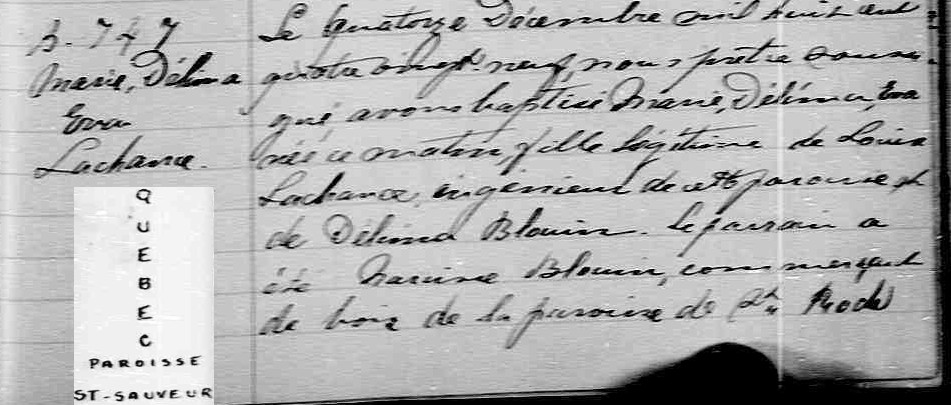 B. 747
Marie, Délima
Eva
Lachance.
QUEBEC
PAROISSE
ST-SAUVEUR
Le quatorze Décembre mil huit cent
quatre vingt neuf, nous prêtre soussi-
gné, avons baptisé Marie, Délima, Eva
née ce matin, fille légitime de Louis
Lachance, ingénieur de cette paroisse et
de Délima Blouin. Le parrain a
été Narcisse Blouin, commerçant
de bois de la paroisse de St Roch